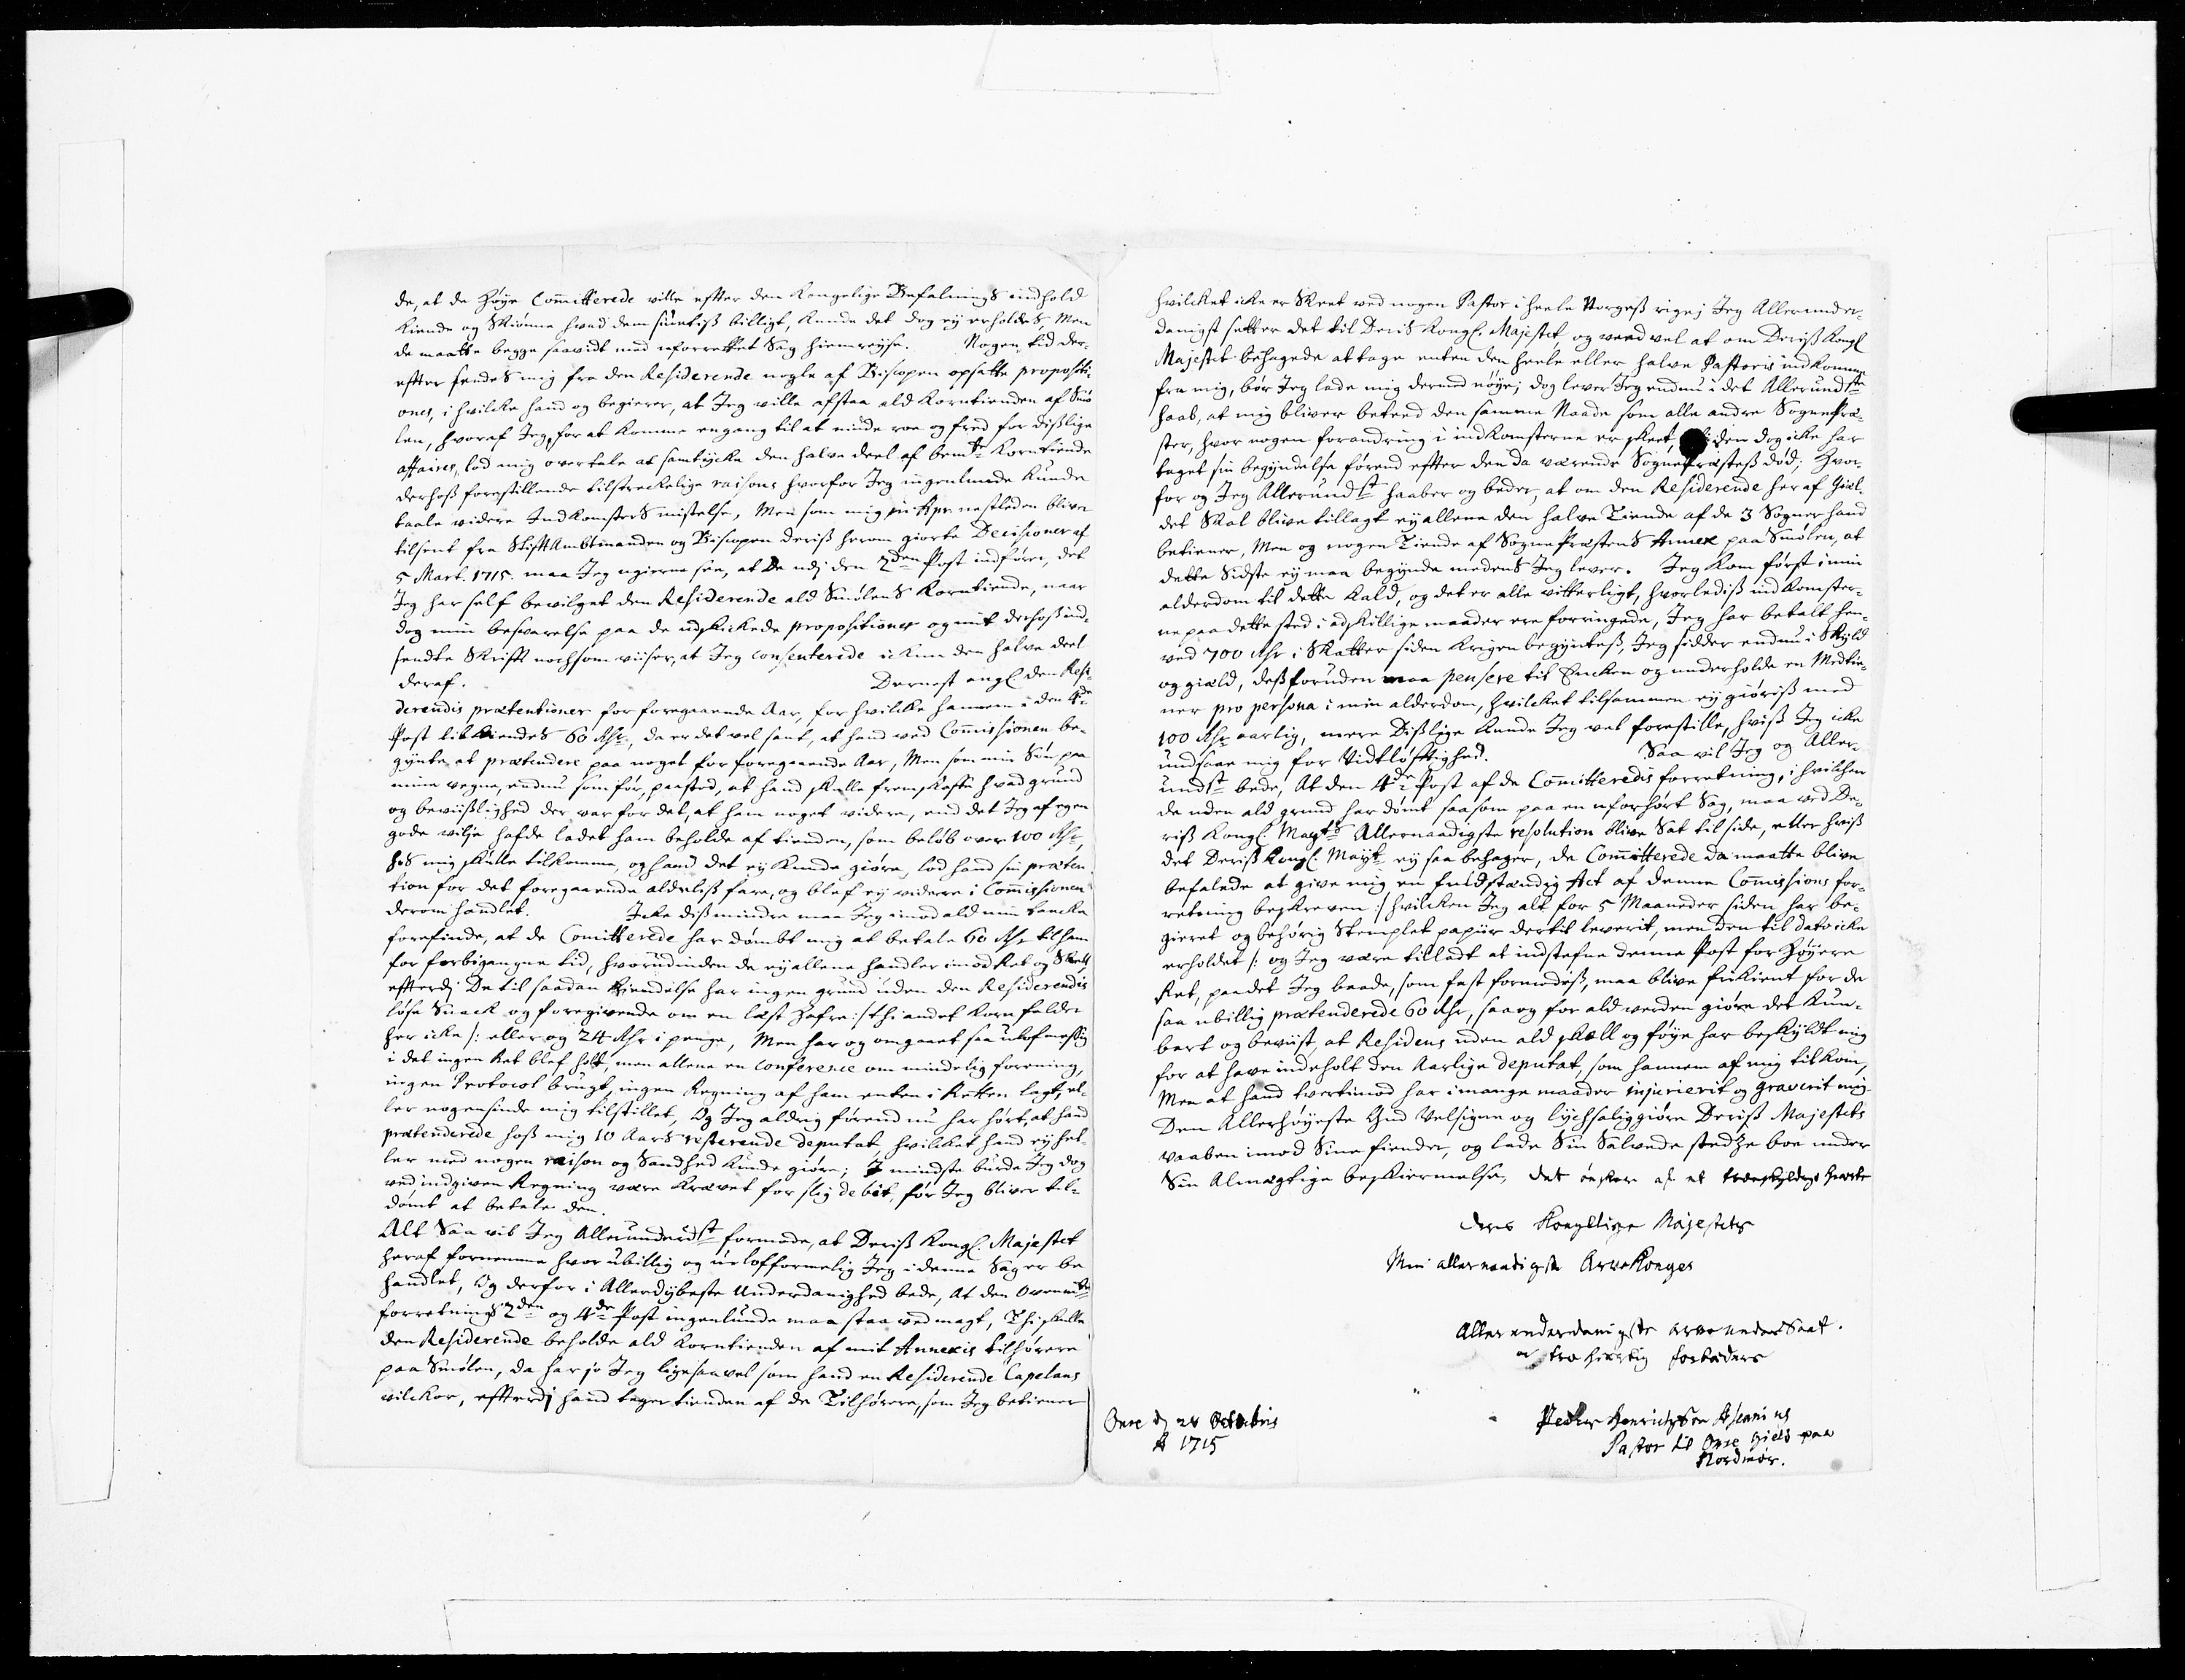 de, at de Høye Com̄itterede ville effter den Kongelige Befalnings indhold
kiende og Skiønne hvad dem siuntiß billigt, kunde det dog ey erholdes, Men
de maatte begge saavidt med uforrettet Sag hiemreyse. Nogen tid der-
effter sendes mig fra den Residerende nogle af Biscopen opsatte propositi-
ones, i hvilcke hand og begierer, at Jeg ville afstaa ald Korntienden af Smø-
len, hvoraf Jeg, for at komme engang til at niude roe og fred for dißlige
affaires, lod mig overtale at samtycke den halve deel af bemte Korntiende
derhoß forestillende tilstreckelige raisons hvorfor Jeg ingenlunde kunde
taale videre Indkomsters mistelse, Men som mig in Apr. nestleden bliver
tilsent fra StifftAmbtmanden og Biscopen deriß herom giorte Decisioner af
5 Mart. 1715. maa Jeg ugierne see, at de udj den 2den Post indfører, det
Jeg har self bevilget den Residerende ald Smølens Korntiende, naar
dog min besvarelse paa de udskickede propositioner og mit derhoß ind-
sendte Skrifft nochsom viiser, at Jeg consenterede ickun den halve deel
deraf. Dernest angl. den Resi-
derendis prætentioner for foregaaende Aar, for hvilcke hannem i den 4de
Post tilkiendes 60 Rdr, da er det vel sant, at hand ved Com̄issionen be-
gynte at prætendere paa noget for foregaaende Aar, Men som min Søn paa
mine vegne, endnu som før, paastod, at hand skulle fremskaffe hvad grund
og beviißlighed der var for det, at ham noget videre, end det Jeg af egen
gode vilje hafde ladet ham beholde af tienden, som beløb over 100 Rdr,
hos mig skulle tilkomme, og hand det ey kunde giøre, lod hand sin præten-
tion for det foregaaende aldeliß fare, og blef ey videre i Com̄issionen
derom handlet. Icke diß mindre maa Jeg imod ald min tancke
forefinde, at de Comitterede har dømbt mig at betale 60 Rdr til ham
for forbigangne tid, hvorudinden de ey allene handler imod Ret og Skell,
effterdj De til saadan kiendelse har ingen grund uden den Residerendis
løse Snack og foregivende om en læst Hafre :/ thi andet Korn falder
her icke /: eller og 24 Rdr i penge, Men har og omgaaet saa ulofmessig
i det ingen Ret blef holt, men allene en conference om mindelig forening,
ingen Protocol brugt, ingen Regning af ham enten i Retten lagt, el-
ler nogensinde mig tilstillet, Og Jeg aldrig førend nu har hørt, at hand
prætenderede hoß mig 10 Aars resterende deputat, hvilcket hand ey hel-
ler med nogen raison og Sandhed kunde giøre; I mindste burde Jeg dog
ved indgiven Regning være krævet for slig debit, før Jeg bliver til-
dømt at betale den.
Alt Saa vil Jeg Allerunderdst formode, at Deriß Kongl. Majestet
heraf fornemme hvor ubillig og ulofformelig Jeg i denne Sag er be-
handlet, Og derfor i Allerdybeste Underdanighed bede, At den Ovenmte
forretnings 2den og 4de Post ingenlunde maa staa ved magt, Thi skulle
den Residerende beholde ald Korntienden af mit Annexis tilhørere
paa Smølen, da har jo Jeg ligesaavel som hand en Residerende Capelans
vilckor, effterdj hand tager tienden af de Tilhørere, som Jeg betiener
hvilcket icke er Skeet ved nogen Pastor i heele Norgeß rige; Jeg Allerunder-
danigst setter det til Deris Kongl. Majestet, og veed vel at om Deriß Kongl
Majestet behagede at tage enten den heele eller halve Pastoris indkomme
fra mig, bør Jeg lade mig dermed nøye; dog lever Jeg endnu i det Allerundste
haab, at mig bliver beteed den samme Naade som alle andre SognePræ-
ster, hvor nogen forandring i indkomsterne er skeet, den dog icke har
taget sin begyndelse førend effter den da værende SognePræsteß død; Hvor-
for og Jeg Allerundst haaber og beder, at om den Residerende her af Giel-
det Skal blive tillagt ey allene den halve Tiende af de 3 Sogner hand
betiener, Men og nogen Tiende af SognePræstens Annex paa Smølen, at
dette Sidste ey maa begynde medens Jeg lever. Jeg kom først i min
alderdom til dette Kald, og det er alle vitterligt, hvorlediß indkomster-
ne paa dette sted i adskillige maader ere forringede, Jeg har betalt hen-
ved 700 Rdr i Skatter siden Krigen begynteß, Jeg sidder endnu i Skyld
og giæld, deßforuden maa pensere til Encken og underholde en Medtie-
ner pro persona i min alderdom, hvilcket tilsammen ey giøriß med
100 Rdr aarlig, mere dißlige kunde Jeg vel forestille, hviß Jeg icke
undsaae mig for Vidtløfftighed. Saa vil Jeg og Aller-
undst bede, At den 4de Post af de Com̄itteredis forretning, i hvilcken
de uden ald grund har dømt saasom paa en uforhørt Sag, maa ved De-
riß Kongl. Mayts Allernaadigste resolution blive Sat til side, eller hviß
det Deriß Kongl. Mayt ey saa behager, de Com̄itterede da maatte blive
befalede at give mig en fuldstændig Act af denne Com̄issions for-
retning beskreven :/ hvilcken Jeg alt for 5 Maaneder siden har be-
gieret og behørig Stemplet papiir dertil leverit, men den til dato icke
erholdet /: og Jeg være tilladt at indstefne denne Post for Høyere
Ret, paa det Jeg baade, som fast formodeß, maa blive frikient for de
saa ubillig prætenderede 60 Rdr, saa og for ald verden giøre det kun-
bart og beviist, at Residens uden ald skæll og føye har beskyldt mig
for at have indeholt den Aarlige deputat, som hannem af mig tilkom,
Men at hand tvertimod har i mange maader injurierit og graverit mig.
Den Allerhøyeste Gud Velsigne og lychsaliggiøre Deriß Majestets
vaaben imod Sine fiender, og lade Sin Salvede stedze boe under
Sin Almægtige beskiermelse, det ønsker af et troeskyldigt hierte
Deres Kongelige Majestets
Min allernaadigste ArveKonges
Allerunderdanigste arveunderSaat.
oc tro hiertig forbedere
Onre d 24 Octobris
A 1715
Peder Henrichsøn
Pastor til Onre gield paa
Nordmør.